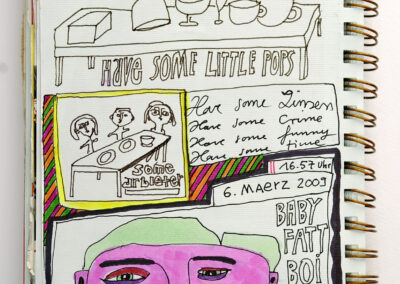 HAVE SOME LITTLE POPS
Have some Linsen
Have some Crime
Have some funny
Have some time
some
arbieter
16.57 Uhr
6. MAERZ 2009
BABY
FATT
BOI